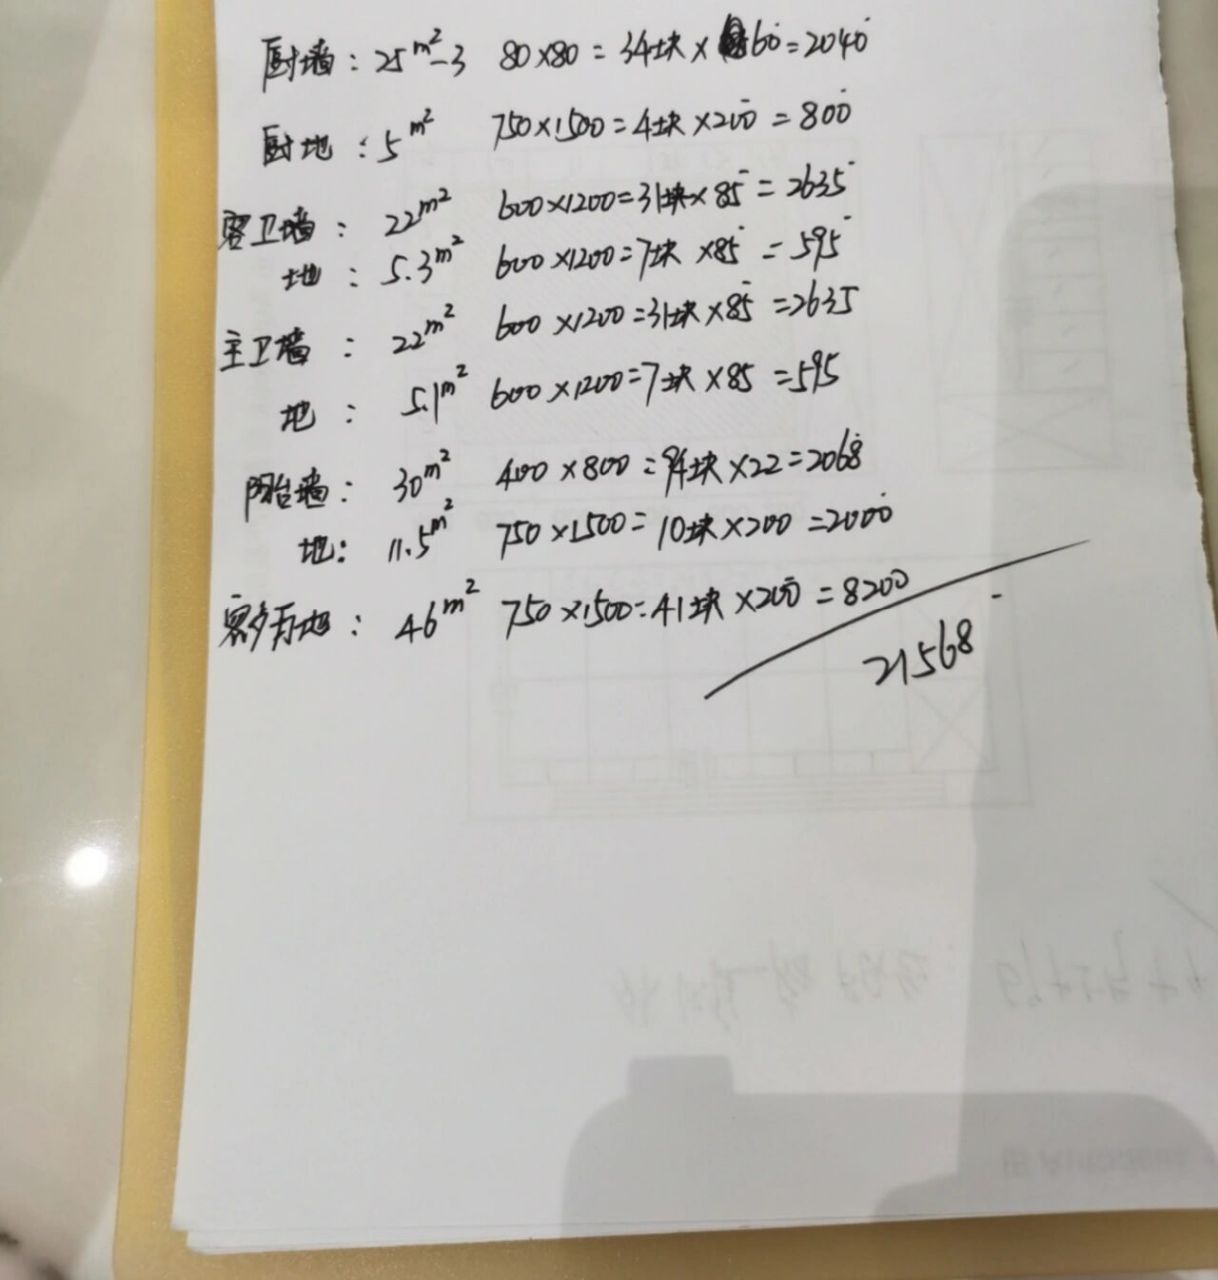 厨墙：25m²-3 80×80=34块×60=2040
厨地：5m² 750×1500=4块×200=800
客卫墙：22m² 600×1200=31块×85=2635
地：5.3m² 600×1200=7块×85=595
主卫墙：22m² 600×1200=31块×85=2635
地：5.1m² 600×1200=7块×85=595
阳台墙：30m² 400×800=94块×22=2068
地：11.5m² 750×1500=10块×200=2000
地：46m² 750×1500=41块×200=8200
21568